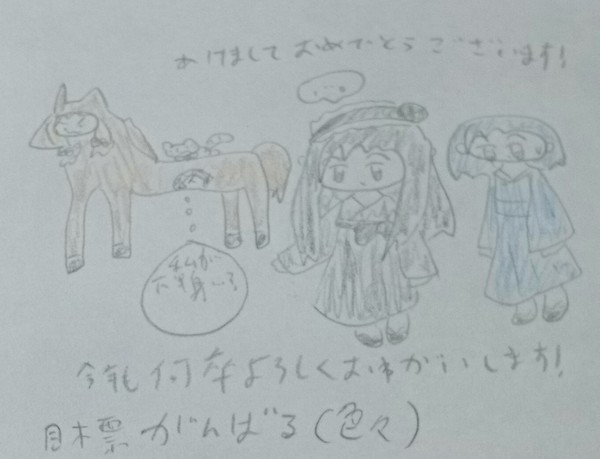 あけましておめでとうございます!
...
私が
下半身いる
今年も何卒よろしくおねがいします!
目標 がんばる(色々)